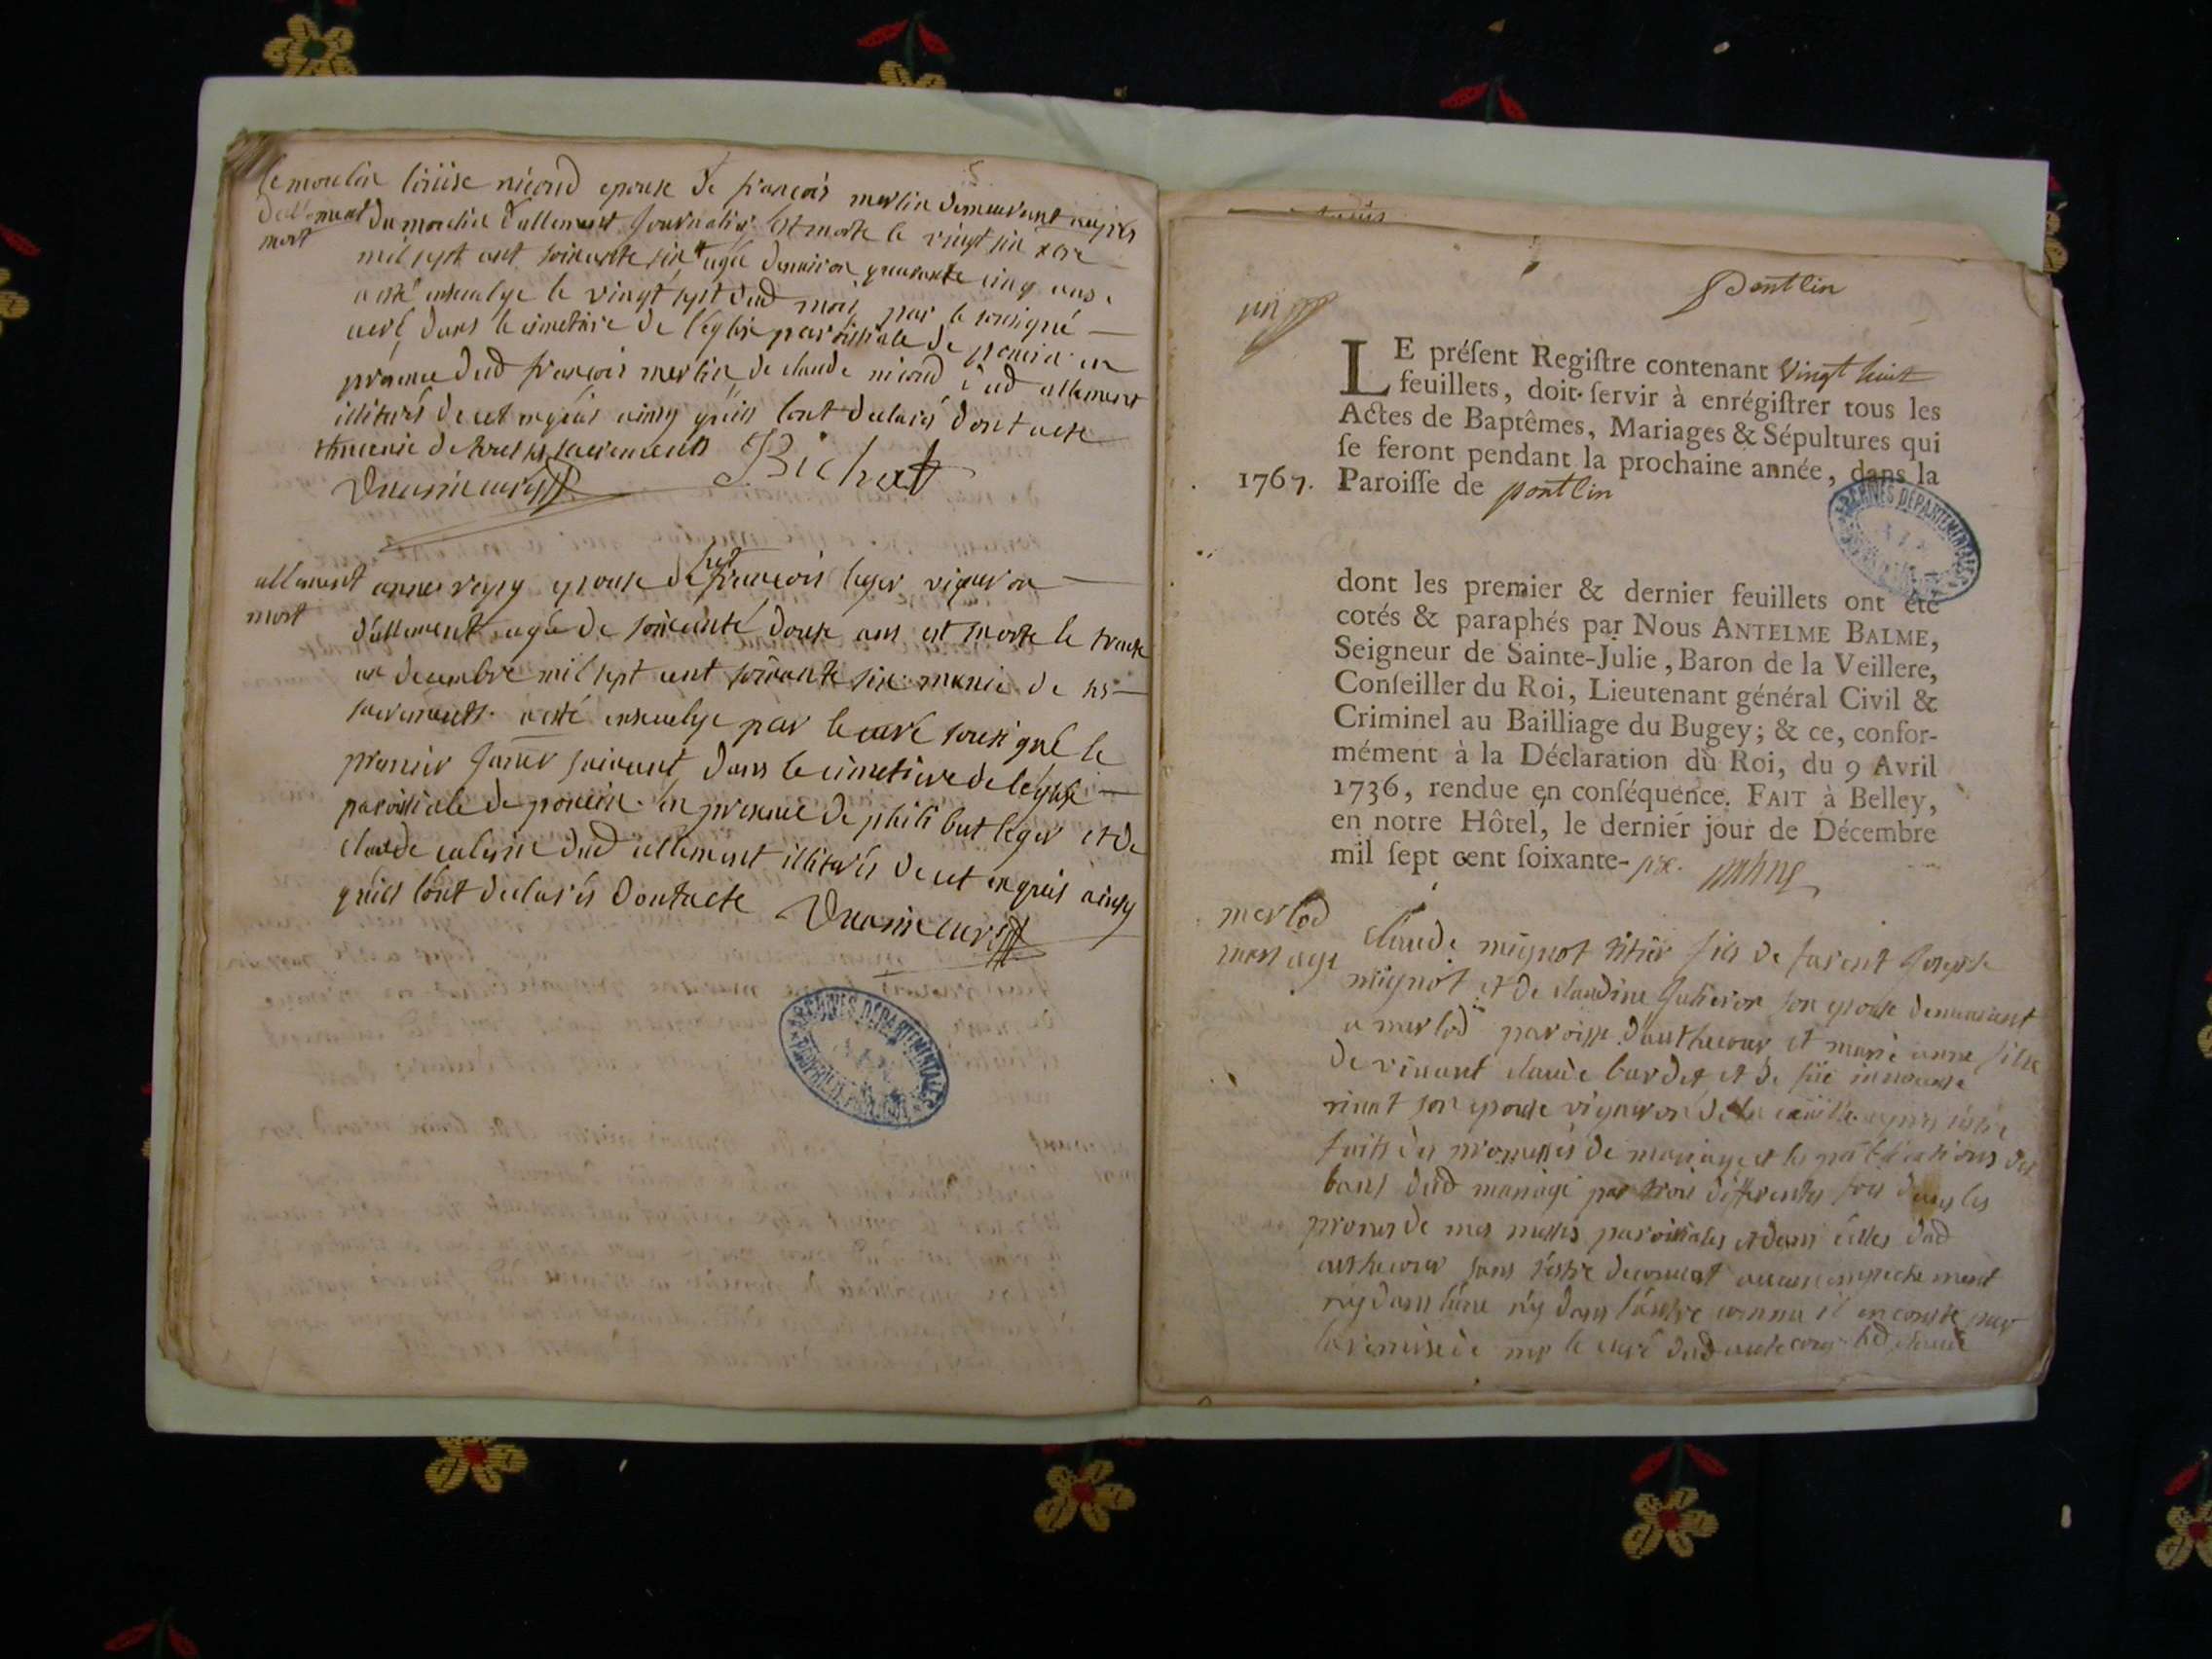 le moulin louise nicoud epouse de françois merlin demeurant aupres
d'allement du moulin d'allement journalier est morte le vingt six xbre
mort mil sept cent soixante six agée d'environ quarante cinq ans
a esté ensevelye le vingt sept dud mois par le sousigné
curé dans le cimetiere de l'eglise paroissiale de poncin en
presence dud françois merlin de claude nicoud dud allement
illiterés de cet enquis ainsy qu'ils l'ont declarés dont acte
munie de tous ses sacremens J. Bichat
curé
allement anne epouse de françois leger vigneron
mort d'allement agée de soixante douze ans est morte le trente
un decembre mil sept cent soixante six munie de ses
sacrements a esté ensevelye par le curé sousigné le
premier janvier suivant dans le cimetiere de l'eglise
paroissiale de poncin en presence de philibert leger et de
claude dud allement illiterés de cet enquis ainsy
qu'ils l'ont declarés dont acte curé
ARCHIVES DÉPARTEMENTALES
PROPRIÉTÉ PUBLIQUE
un
LE préſent Regiſtre contenant vingt huit
feuillets, doit ſervir à enrégiſtrer tous les
Actes de Baptêmes, Mariages & Sépultures qui
ſe feront pendant la prochaine année, dans la
1767. Paroiſſe de
ARCHIVES DÉPARTEMENTALES
dont les premier & dernier feuillets ont été
cotés & paraphés par Nous ANTELME BALME,
Seigneur de Sainte-Julie, Baron de la Veillere,
Conſeiller du Roi, Lieutenant général Civil &
Criminel au Bailliage du Bugey; & ce, confor-
mément à la Déclaration du Roi, du 9 Avril
1736, rendue en conſéquence. FAIT à Belley,
en notre Hôtel, le dernier jour de Décembre
mil ſept cent ſoixante- six.
merlod claude mignot fils de joseph
mariage mignot et de claudine son epouse demeurant
a merlod paroisse et marie anne fille
de vivant claude bardet et de
son epouse vigneron de
faits des promesses de mariage et les publications des
bans dud mariage par trois differentes fois dans les
prones de mes messes paroissiales et dans celles dud
sans s'estre decouvert aucun empechement
ny dans l'une ny dans l'autre comme il en conste par
la remise de mr le curé dud led claude